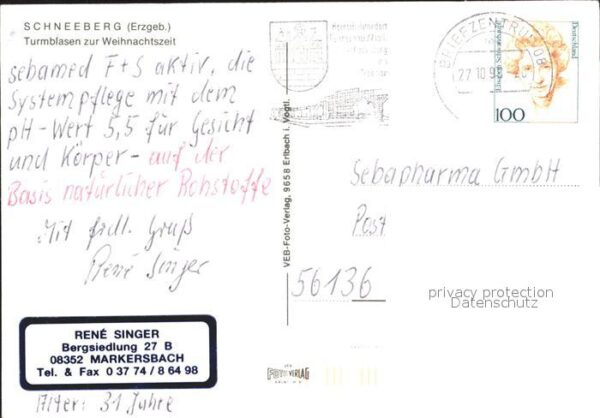 SCHNEEBERG (Erzgeb.)
Turmblasen zur Weihnachtszeit
sebamed F+S aktiv, die
Systempflege mit dem
pH-Wert 5,5 für Gesicht
und Körper - auf der
Basis natürlicher Rohstoffe
Mit frdl. Gruß
René Singer
RENÉ SINGER
Bergsiedlung 27 B
08352 MARKERSBACH
Tel. & Fax 0 37 74 / 8 64 98
Alter: 31 Jahre
VEB-Foto-Verlag, 9658 Erlbach i. Vogtl.
BRIEFZENTRUM 08
Deutschland
100
Sebapharma GmbH
Post
56136
privacy protection
Datenschutz
FOTO VERLAG